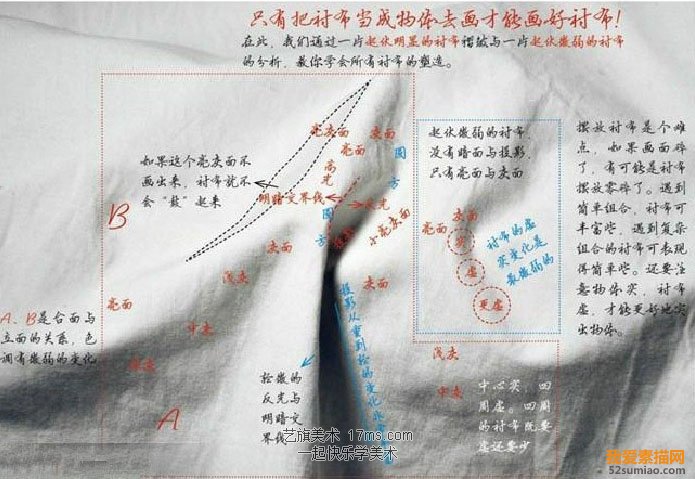 只有把衬布当成物体去画才能画好衬布！
在此，我们通过一片起伏明显的衬布褶皱与一片起伏微弱的衬布
的分析，教你学会所有衬布的塑造。
如果这个亮灰面不
画出来，衬布就不
会“鼓”起来
B
亮灰面
灰面
亮面
高光
明暗交界线
反光
圆
方
圆
方
小亮灰面
灰面
灰面
浅灰
亮面
中灰
深灰
A、B是台面与
立面的关系，色
调有微弱的变化
A
投影从重到轻的变化
轻微的
反光与
明暗交
界线
起伏微弱的衬布，
没有暗面与投影，
只有亮面与灰面
灰面
亮面
实
虚
更虚
衬布的虚
实变化是
最微弱的
摆放衬布是个难
点，如果画面碎
了，有可能是衬布
摆放零碎了。遇到
简单组合，衬布可
丰富些，遇到复杂
组合的衬布可表现
得简单些。还要注
意物体实，衬布
虚，才能更好地突
出物体。
浅灰
中灰
中心实，四
周虚。四周
的衬布既要
虚还要少
艺旗美术 17ms.com
一起快乐学美术
我爱素描网
52sumiao.com